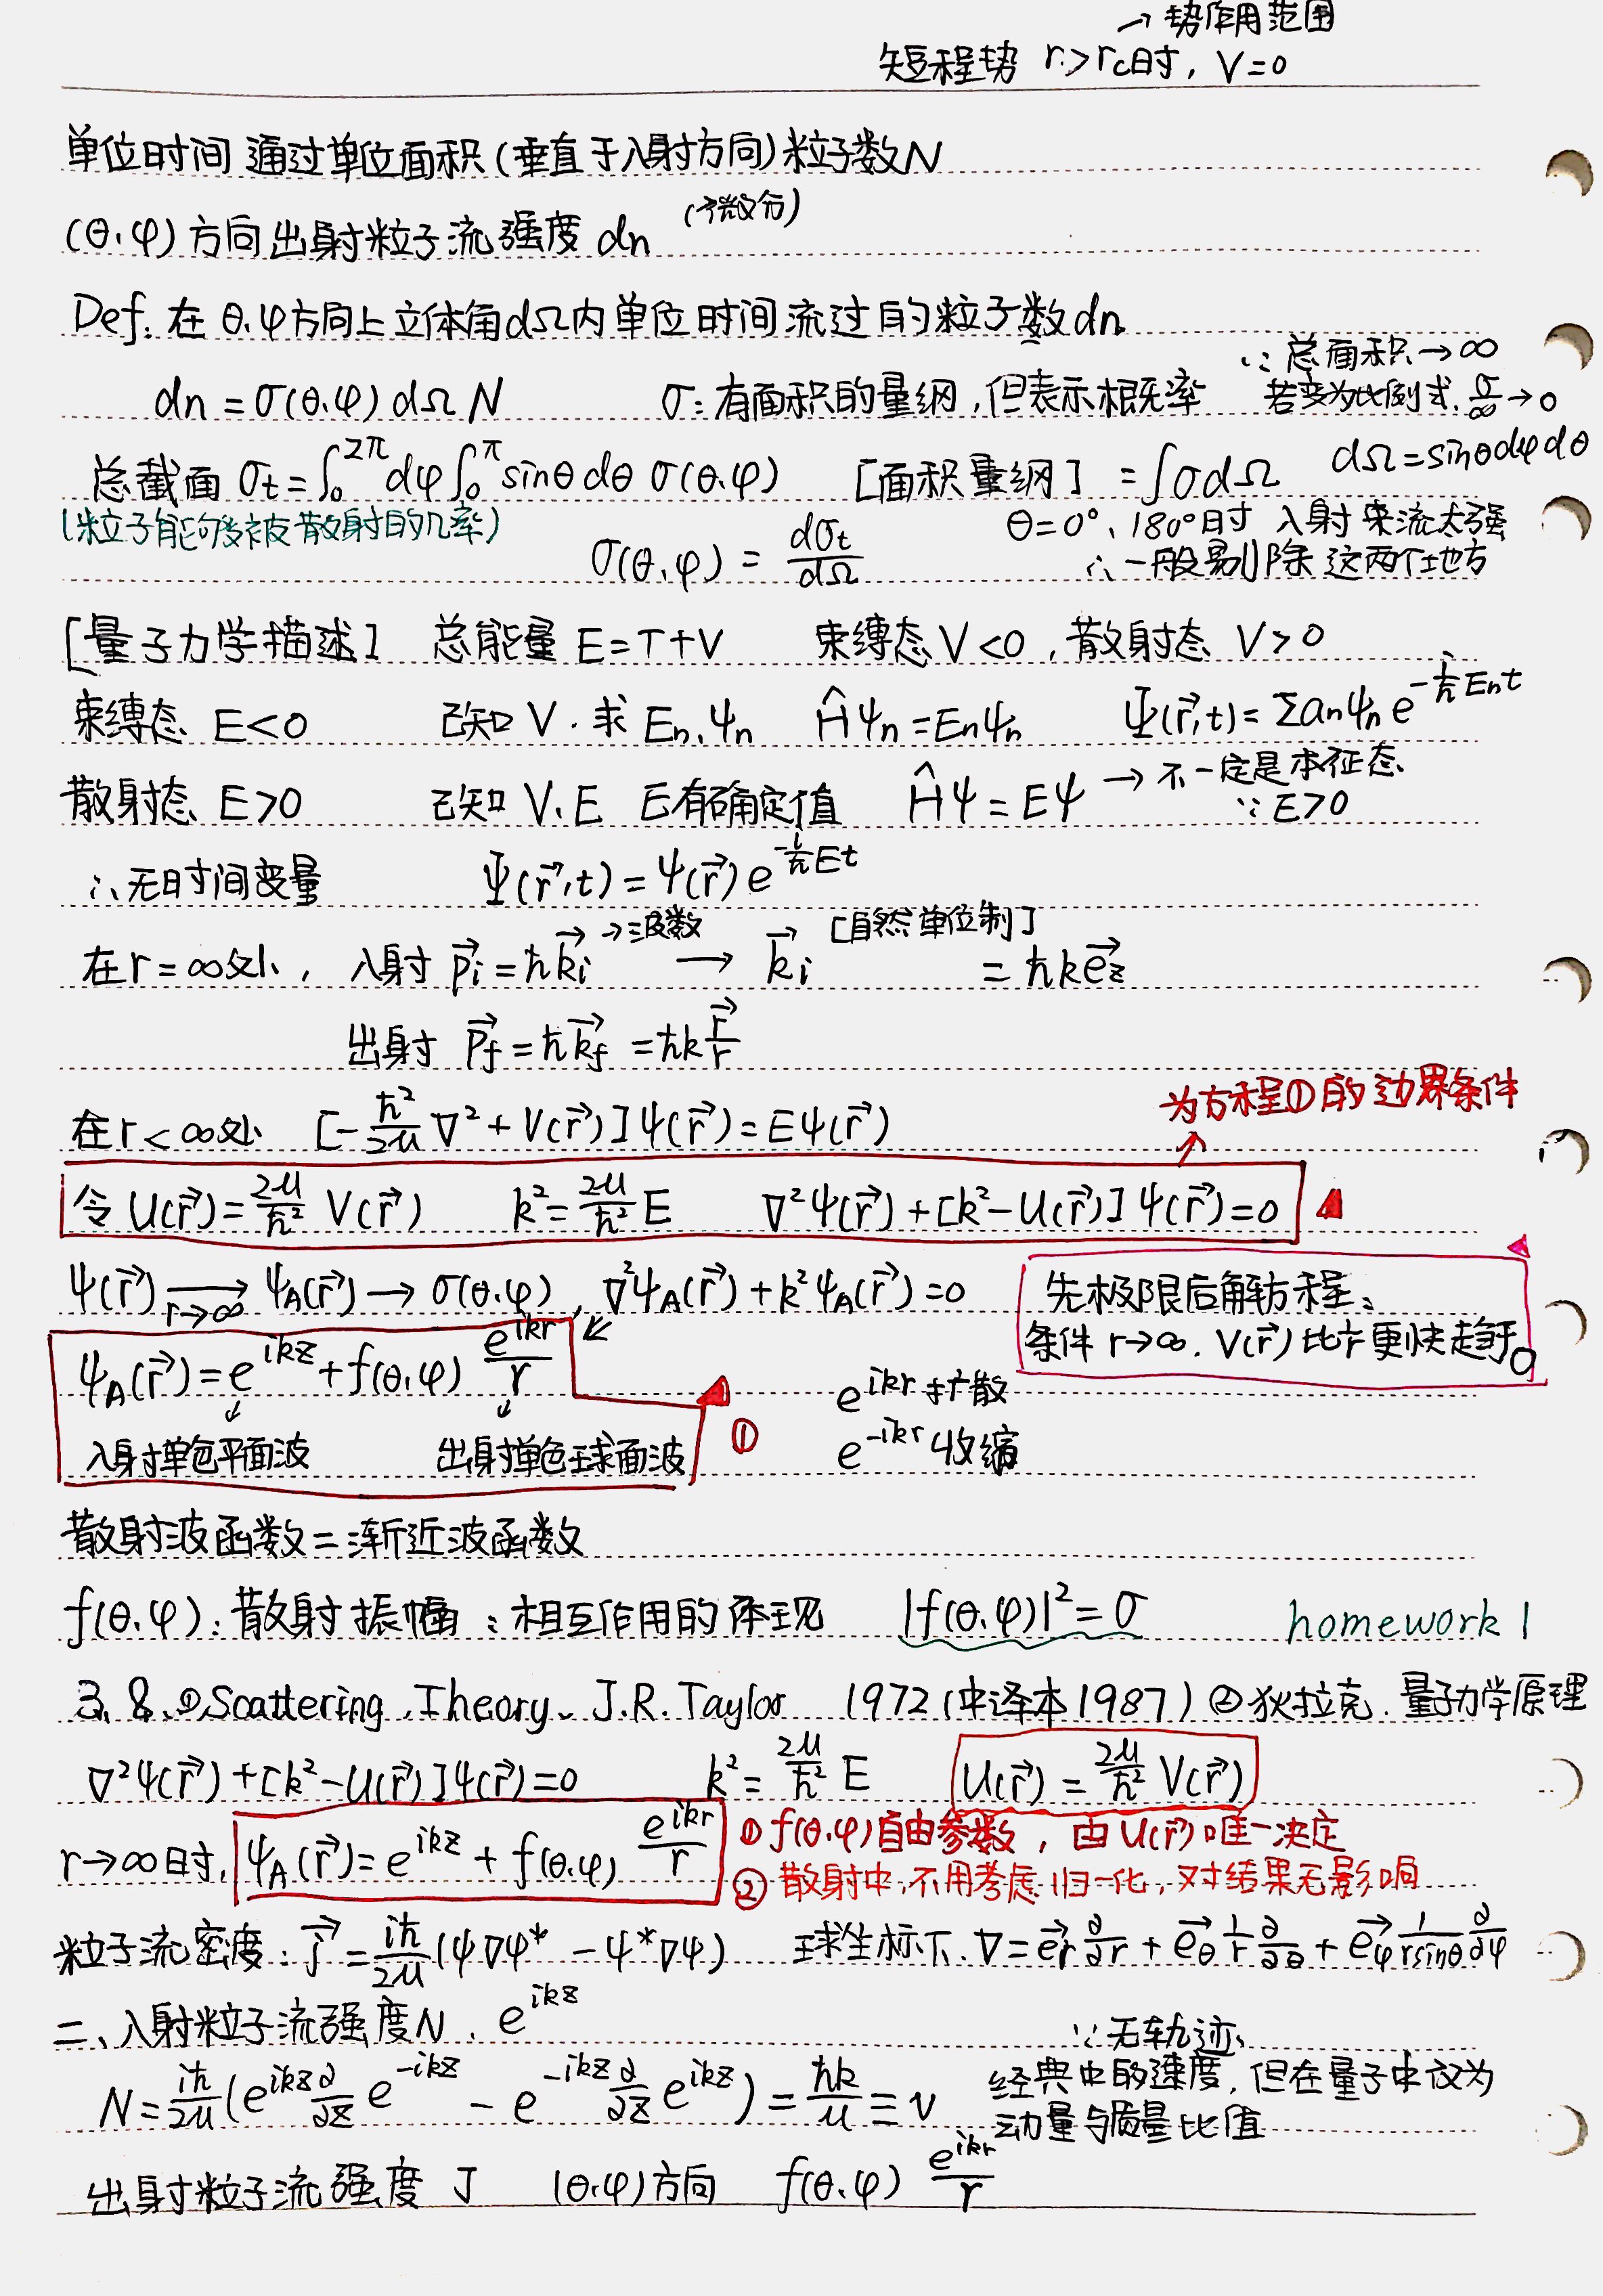 → 势作用范围
短程势 r>rc时, V=0
单位时间 通过单位面积 (垂直于入射方向) 粒子数N
(θ,φ) 方向出射粒子流强度 dn (微分)
Def. 在 θ.φ方向上立体角dΩ内单位时间流过的粒子数dn
dn = σ(θ.φ) dΩ N σ: 有面积的量纲, 但表示概率 ∵ 总面积→∞
若变为比例式. σ/∞→0
总截面 σt = ∫₀^2π dφ ∫₀^π sinθ dθ σ(θ.φ) [面积量纲] = ∫σdΩ dΩ=sinθdφdθ
(粒子能够被散射的几率) θ=0°, 180°时 入射束流太强
σ(θ,φ) = dσt/dΩ ∴ 一般剔除这两个地方
[量子力学描述] 总能量 E=T+V 束缚态 V<0, 散射态 V>0
束缚态 E<0 已知 V. 求 En, ψn Ĥψn=Enψn Ψ(r⃗,t)=Σanψn e^(-i/ħ Ent)
散射态 E>0 已知 V.E E有确定值 Ĥψ=Eψ → 不一定是本征态
∵ E>0
∴ 无时间变量 Ψ(r⃗,t) = ψ(r⃗) e^(-i/ħ Et)
在r=∞处, 入射 p⃗i=ħk⃗i →波数 → k⃗i [自然单位制] = ħke⃗z
出射 p⃗f=ħk⃗f =ħk r⃗/r
为方程①的边界条件
在r<∞处 [-ħ²/2μ ∇² + V(r⃗)]ψ(r⃗)=Eψ(r⃗)
令 U(r⃗)=2μ/ħ² V(r⃗) k²=2μ/ħ² E ∇²ψ(r⃗)+[k²-U(r⃗)]ψ(r⃗)=0
ψ(r⃗) →(r→∞) ψA(r⃗) → σ(θ.φ), ∇²ψA(r⃗)+k²ψA(r⃗)=0 先极限后解方程
条件 r→∞. V(r⃗) 比 1/r 更快趋于0
ψA(r⃗)=e^ikz+f(θ,φ) e^ikr/r e^ikr 扩散
入射单色平面波 出射单色球面波 ① e^-ikr 收缩
散射波函数=渐近波函数
f(θ.φ): 散射振幅: 相互作用的体现 |f(θ.φ)|²=σ homework 1
3.8. ①Scattering Theory. J.R.Taylor 1972 (中译本1987) ②狄拉克. 量子力学原理
∇²ψ(r⃗)+[k²-U(r⃗)]ψ(r⃗)=0 k²=2μ/ħ² E U(r⃗)=2μ/ħ² V(r⃗)
r→∞时, ψA(r⃗)=e^ikz+f(θ.φ) e^ikr/r ①f(θ.φ)自由参数, 由U(r⃗)唯一决定
② 散射中,不用考虑归一化, 对结果无影响
粒子流密度: j⃗=iħ/2μ(ψ∇ψ* - ψ*∇ψ) 球坐标下. ∇=e⃗r ∂/∂r + e⃗θ 1/r ∂/∂θ + e⃗φ 1/rsinθ ∂/∂φ
二、入射粒子流强度N. e^ikz
∵ 无轨迹
N=iħ/2μ(e^ikz ∂/∂z e^-ikz - e^-ikz ∂/∂z e^ikz) = ħk/μ ≡ v 经典中的速度, 但在量子中仅为
动量与质量比值
出射粒子流强度 J (θ.φ)方向 f(θ.φ) e^ikr/r